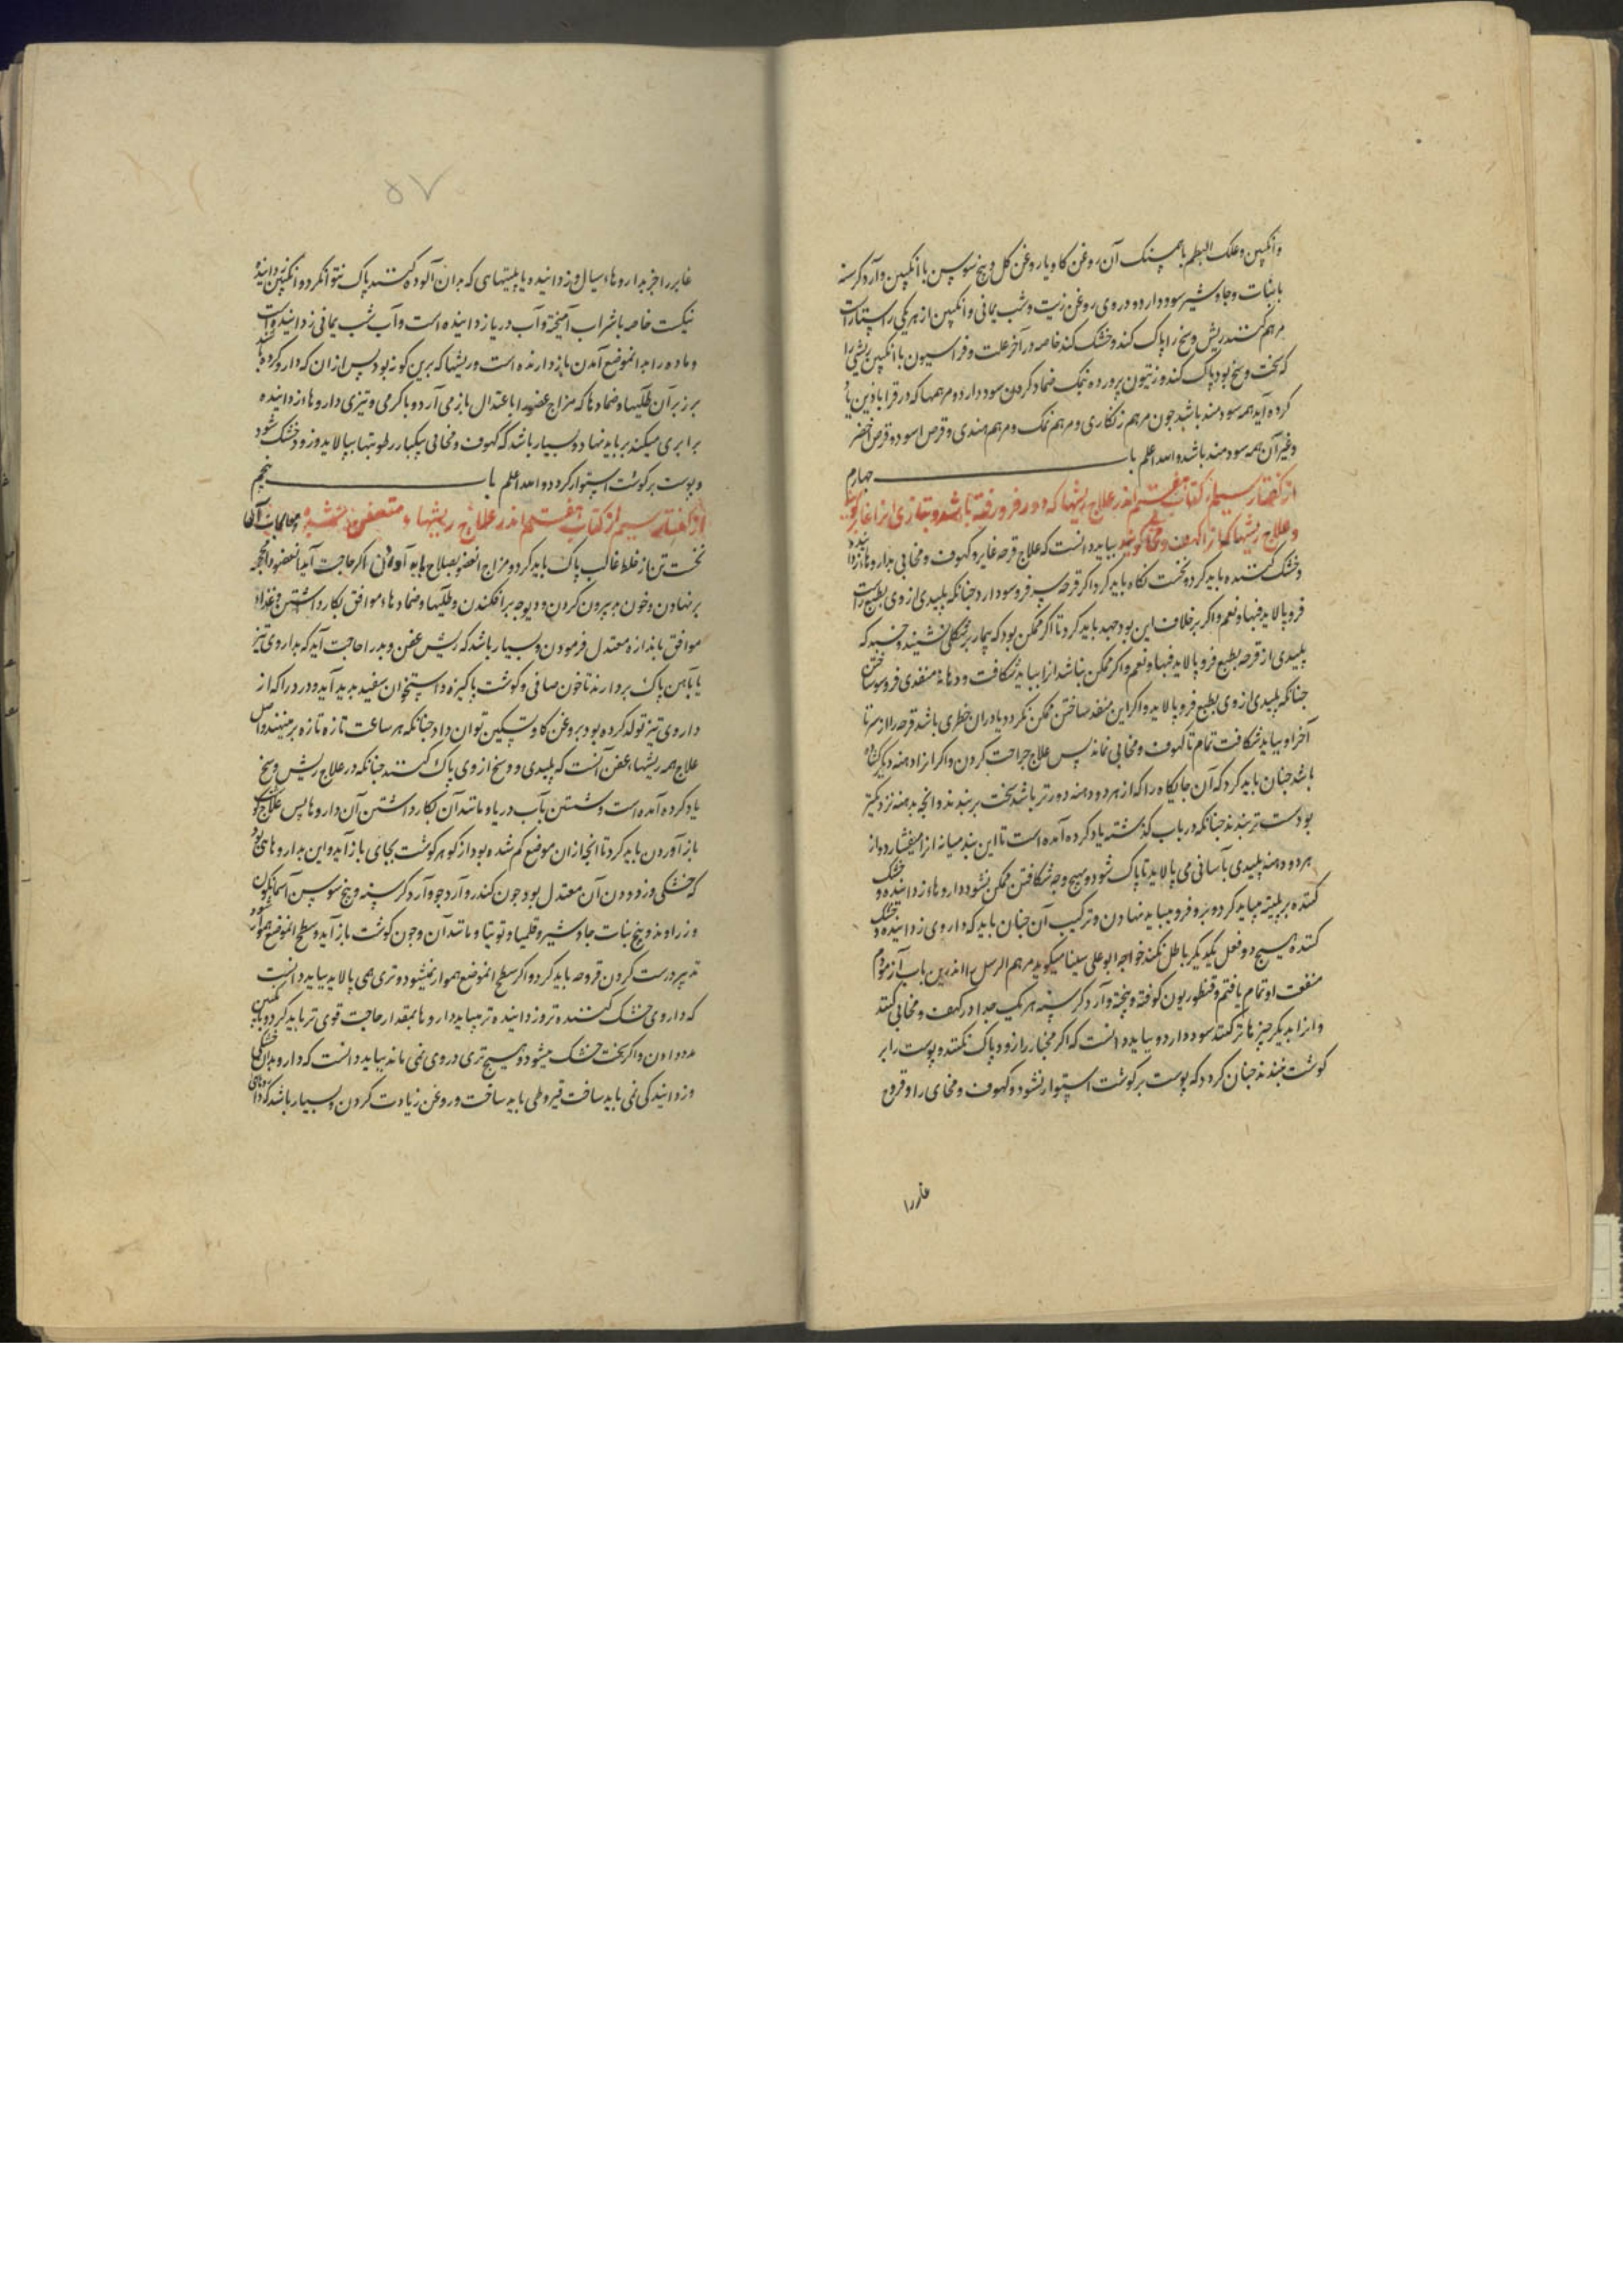 وانکبین و علک البطم باهم سنک آن روغن کاو یا روغن کل و بیخ سوسن با انکبین و آرد کرسنه
با نبات و جاوشیر سود دارد و دردی روغن زیت و شب یمانی و انکبین از هر یکی راستاراست
مرهم کنند ریش وسخ را پاک کند و خشک کند خاصه در آخر علت و فراسیون با انکبین ریشی را
که سخت وسخ بود پاک کند و زیتون پرورده بنمک ضماد کردن سود دارد و مرهمها که در قرابادین یاد
کرده آید همه سودمند باشد جون مرهم زنکاری و مرهم نمک و مرهم هندی و قرص اسود و قرص اخضر
و غیر آن همه سودمند باشد والله اعلم باب جهارم
از کفتار سیم از کتاب هفتم اندر علاج ریشها که دور فرو رفته باشد و بتازی انرا غایر کویند
و علاج ریشها که انرا کهوف و مخابی کویند بباید دانست که علاج قرحه غایر و کهوف و مخابی بداروها زداینده
و خشک کننده باید کرد و نخست نکاه باید کرد اکر قرحه سر فرو سو دارد جنانکه پلیدی از وی بطبع راست
فرو پالاید فبها و نعم و اکر برخلاف این بود جهد باید کرد تا اکر ممکن بود که بیمار بر شکلی نشیند و خسبد که
پلیدی از قرحه بطبع فرو پالاید فبها و نعم و اکر ممکن نباشد انرا بباید شکافت و دهانه منفذی فروسو ساختن
جنانکه پلیدی از وی بطبع فرو پالاید و اکر این منفذ ساختن ممکن نکردد یا دران خطری باشد قرحه را از سر تا
آخر او بباید شکافت تمام تا کهوف و مخابی نماند پس علاج جراحت کردن و اکر انرا دهنه دیکر کشاده
باشد جنان باید کرد که آن جایکاه را که از هر دو دهنه دورتر باشد سخت بربندند و انجه بدهنه نزدیکتر
بود سست تر بندند جنانکه در باب کذشته یاد کرده آمده است تا این بند میانه انرا میفشارد و از
هر دو دهنه پلیدی بآسانی می پالاید تا پاک شود و بهیج وجه شکافتن ممکن نشود داروهاء زداینده و خشک
کننده بر پلیته میباید کرد و بر و فرو میباید نهادن و ترکیب آن جنان باید که داروی زداینده و خشک
کننده هیج دو فعل یکدیکر باطل نکند خواجه ابوعلی سینا میکوید مرهم الرسل را اندرین باب آزمودم
منفعت او تمام یافتم و قنطوریون کوفته و پخته و آرد کرسنه هر یک جدا در کهف و مخابی کنند
و انرا بدیکر جیزها تر کنند سود دارد و بباید دانست که اکر مخبا را زود پاک نکنند و پوست را بر
کوشت نبندند جنان کردد که پوست بر کوشت استوار نشود و کهوف و مخابی را و قروح
غایر را
۵۷
غایر را جز بداروهاء سیال و زداینده یا پلیتهایی که بدان آلوده کنند پاک نتوان کرد و انکبین زداینده
نیکست خاصه با شراب آمیخته و آب دریا زداینده است و آب شب یمانی زداینده است
و ماده را بدان موضع آمدن باز دارنده است و ریشها که برین کونه بود پس ازان که دارو کرده باشند
بر زبر آن طلیها و ضمادها که مزاج عضو را باعتدال باز می آرد و با کرمی و تیزی داروهاء زداینده
برابری میکند بر باید نهاد و بسیار باشد که کهوف و مخابی بیکبار رطوبتها بپالاید و زود خشک شود
و پوست بر کوشت استوار کردد والله اعلم باب پنجم
از کفتار سیم از کتاب هفتم اندر علاج ریشها متعفن و معالجات آن
نخست تن از خلط غالب پاک باید کرد و مزاج انعضو بصلاح باید آوردن اکر حاجت آید انعضو را محجمه
برنهادن و خون بیرون کردن و دیوجه برافکندن و طلیها و ضمادهاء موافق بکار داشتن و غذاء
موافق باندازه معتدل فرمودن و بسیار باشد که ریش عفن و بد را حاجت آید که بداروی تیز
یا بآهن پاک بردارند تا خون صافی و کوشت پاکیزه و استخوان سفید پدید آید و درد را که از
داروی تیز تولد کرده بود بروغن کاو تسکین توان داد جنانکه هر ساعت تازه تازه برمینهند و اصل
علاج همه ریشهاء عفن آنست که پلیدی و وسخ از وی پاک کنند جنانکه در علاج ریش وسخ
یاد کرده آمده است و شستن بآب دریا و مانند آن بکار داشتن آن داروها پس علاج کوشت
باز آوردن باید کرد تا انجه ازان موضع کم شده بود از کوهر کوشت بجای باز آید و این بداروهای بود
که خشکی و زدودن آن معتدل بود جون کندر و آرد جو و آرد کرسنه و بیخ سوسن آسمانکون
و زراوند و بیخ نبات جاوشیر و قلمیا و توتیا و مانند آن و جون کوشت باز آید و سطح انموضع هموار شود
تدبیر درست کردن قرحه باید کرد و اکر سطح انموضع هموار نمیشود و تری همی پالاید بباید دانست
که داروی خشک کننده تر و زداینده تر میباید داروها بمقدار حاجت قوی تر باید کرد و بانکبین
مدد دادن و اکر سخت خشک میشود و هیج تری در وی نمی ماند بباید دانست که دارو بدان خشکی
و زدایندکی نمی باید ساخت قیروطی باید ساخت و روغن زیادت کردن و بسیار باشد که داروهای